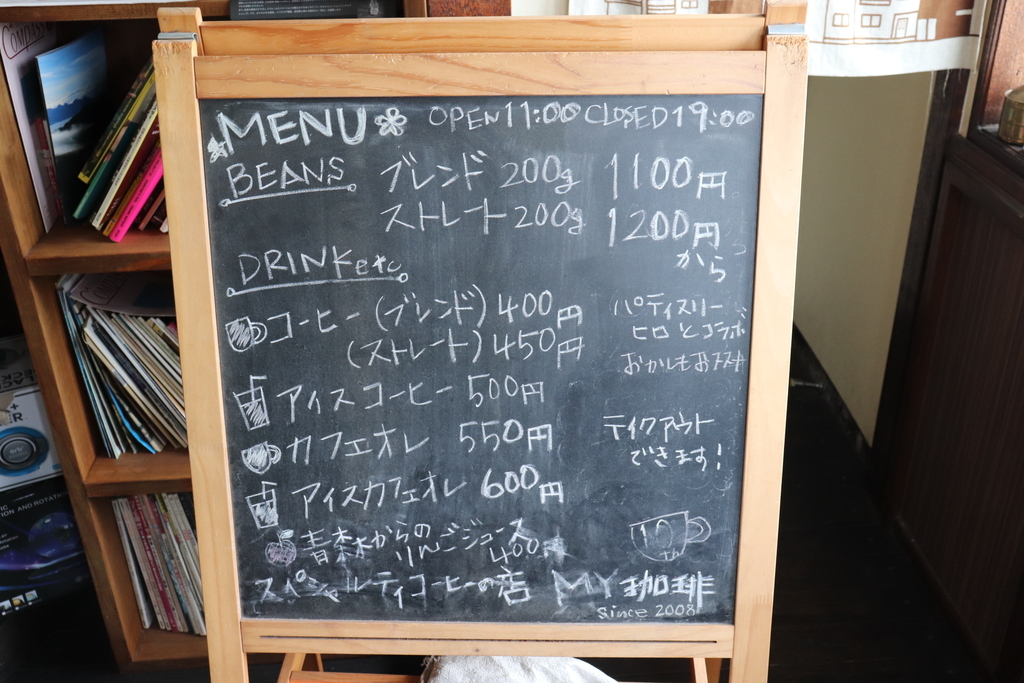 MENU OPEN 11:00 CLOSED 19:00
BEANS ブレンド 200g 1100円
ストレート 200g 1200円
から
DRINK etc
コーヒー (ブレンド) 400円
(ストレート) 450円
アイスコーヒー 500円
カフェオレ 550円
アイスカフェオレ 600円
青森からの
りんごジュース
400円
パティスリー
ヒロとコラボ
おかしもおススメ
テイクアウト
できます!
10
th
スペシャルティコーヒーの店 MY 珈琲
Since 2008